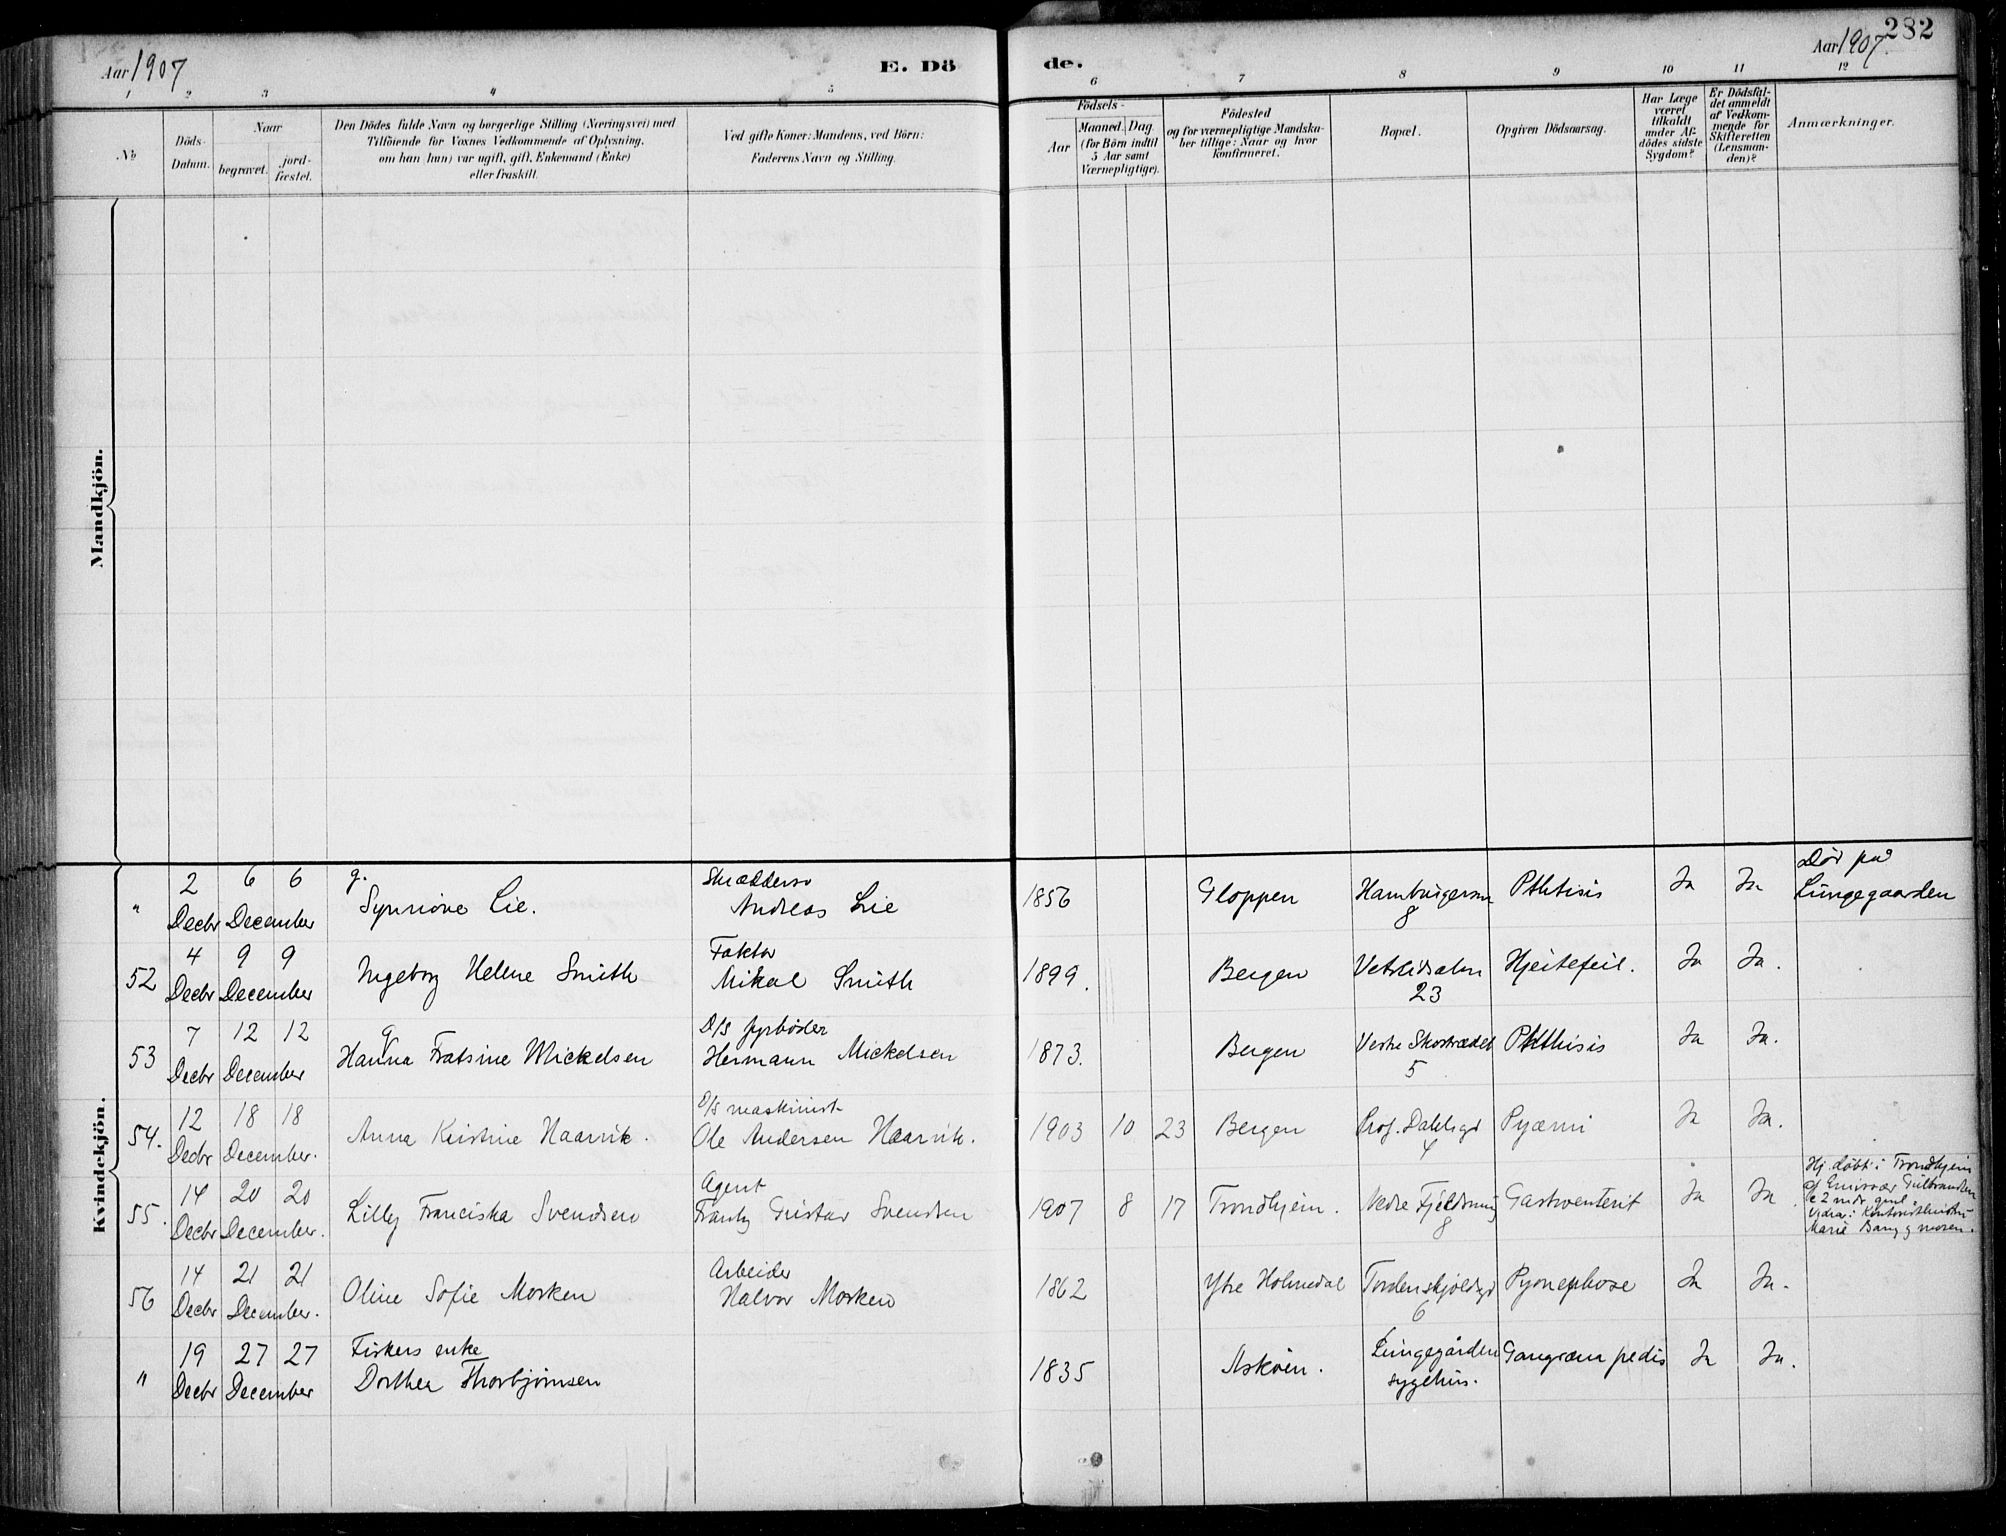 Aar 1907
E. Dö
de.
Aar 1907.
282
1 2 3 4 5 6 7 8 9 10 11 12
№
Döds-
Datum.
Naar
begravet.
jord-
fæstet.
Den Dödes fulde Navn og borgerlige Stilling (Næringsvei) med
Tilföiende for Voxnes Vedkommende af Oplysning,
om han (hun) var ugift, gift, Enkemand (Enke)
eller fraskilt.
Ved gifte Koner: Mandens, ved Börn:
Faderens Navn og Stilling.
Födsels-
Aar
Maaned. Dag
(for Börn indtil
5 Aar samt
Værnepligtige).
Födested
og for værnepligtige Mandska-
ber tillige: Naar og hvor
konfirmeret.
Bopæl.
Opgiven Dödsaarsag.
Har Læge
været
tilkaldt
under Af-
dödes sidste
Sygdom?
Er Dödsfal-
det anmeldt
af Vedkom-
mende for
Skifteretten
(Lensman-
den)?
Anmærkninger.
Mandkjön.
Kvindekjön.
" 2 Decbr 6 6 December g. Synnøve Lie. Skrædder Andreas Lie 1856 Gloppen 8 Phthisis Ja Ja Dør paa Lungegaarden
52 4 Decbr 9 9 December Ingeborg Helene Smith Faktor Mikal Smith 1899. Bergen 23 Hjertefeil. Ja Ja.
53 7 Decbr 12 12 December g Hanna Mickelsen D/S fyrbøder Hermann Mickelsen 1873. Bergen Vestre Skostrædet 5 Phthisis Ja Ja.
54. 12 Decbr 18 18 December. Anna Kristine Haarvik. D/S maskinist Ole Andersen Haarvik. 1903 10 23 Bergen Prof. Dahlsgt 4 Pyæmi Ja Ja.
55. 14 Decbr 20 20 December. Lilly Franciska Svendsen Agent Gustav Svendsen 1907 8 17 Trondhjem. Nedre Fjeldsmug 8 Gastroenterit Ja Ja Hj. døbt i Trondhjem af Emissær Gulbrandsen
Marie Bang, moren.
56 14 Decbr 21 21 December. Oline Sofie Morken Arbeider Halvor Morken 1862 Ytre Holmedal Tordenskjoldsgt 6 Pyonephose Ja Ja.
" 19 Decbr 27 27 December Fiskers enke Dorthea Thorbjørnsen 1835 Askøen. Lungegården sygehus. Gangræn pedis Ja Ja.